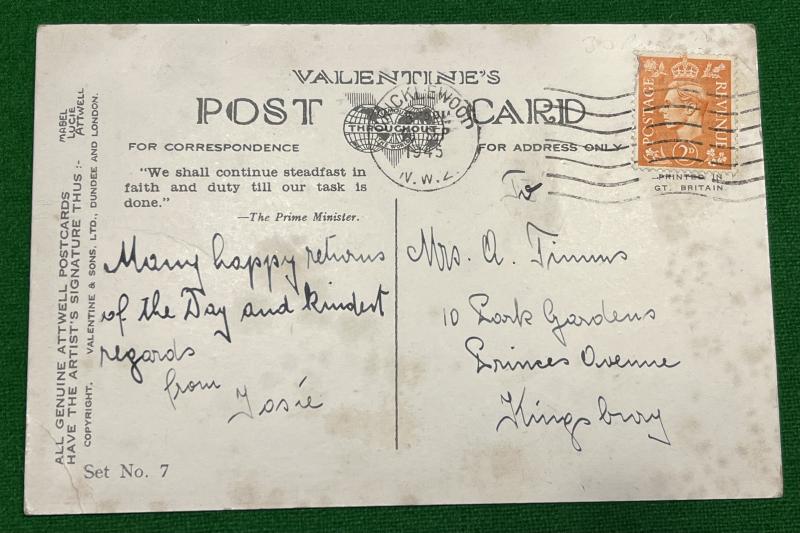 VALENTINE'S
POST CARD
THROUGHOUT
FOR CORRESPONDENCE
FOR ADDRESS ONLY
CRICKLEWOOD
1945
N.W.2.
POSTAGE
REVENUE
2D
PRINTED IN
GT. BRITAIN.
"We shall continue steadfast in
faith and duty till our task is
done."
—The Prime Minister.
Many happy returns
of the Day and kindest
regards
from Josie
To
Mrs. A. Timms
10 Park Gardens
Princes Avenue
Kingsbury
ALL GENUINE ATTWELL POSTCARDS
HAVE THE ARTIST'S SIGNATURE THUS :-
MABEL
LUCIE
ATTWELL
COPYRIGHT. VALENTINE & SONS, LTD., DUNDEE AND LONDON.
Set No. 7